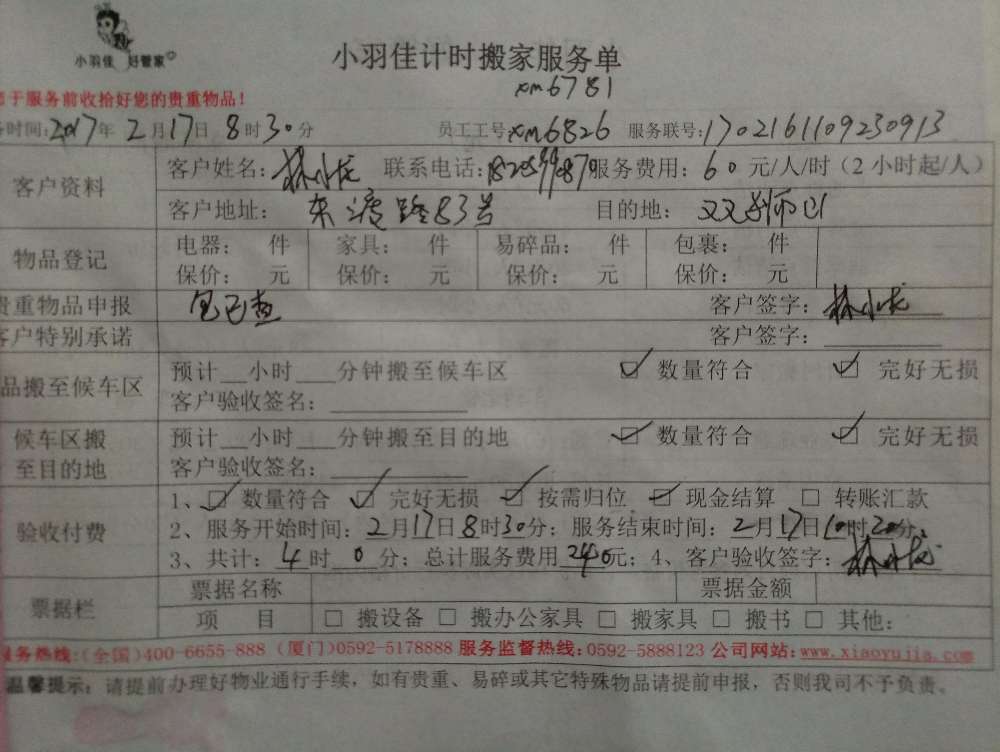 小羽佳 好管家
小羽佳计时搬家服务单
xm6781
于服务前收拾好您的贵重物品!
时间:2017年 2月17日 8时30分 员工工号:xm6826 服务联号:1702161109230913
客户资料
客户姓名:林小龙 联系电话: 服务费用:60元/人/时(2小时起/人)
客户地址: 东渡路83号 目的地: 双狮山
物品登记
电器: 件 家具: 件 易碎品: 件 包裹: 件
保价: 元 保价: 元 保价: 元 保价: 元
贵重物品申报 包已查 客户签字:林小龙
客户特别承诺 客户签字:
品搬至候车区
预计__小时___分钟搬至候车区 ☑ 数量符合 ☑ 完好无损
客户验收签名:
候车区搬
至目的地
预计__小时___分钟搬至目的地 ☑ 数量符合 ☑ 完好无损
客户验收签名:
验收付费
1、☑ 数量符合 ☑ 完好无损 ☑ 按需归位 ☑ 现金结算 □ 转账汇款
2、服务开始时间:2月17日8时30分;服务结束时间:2月17日10时30分;
3、共计:4时0分;总计服务费用240元;4、客户验收签字:林小龙
票据栏
票据名称 票据金额
项 目 □ 搬设备 □ 搬办公家具 □ 搬家具 □ 搬书 □ 其他:
服务热线:(全国)400-6655-888 (厦门)0592-5178888 服务监督热线:0592-5888123 公司网站:www.xiaoyujia.com
温馨提示:请提前办理好物业通行手续,如有贵重、易碎或其它特殊物品请提前申报,否则我司不予负责。